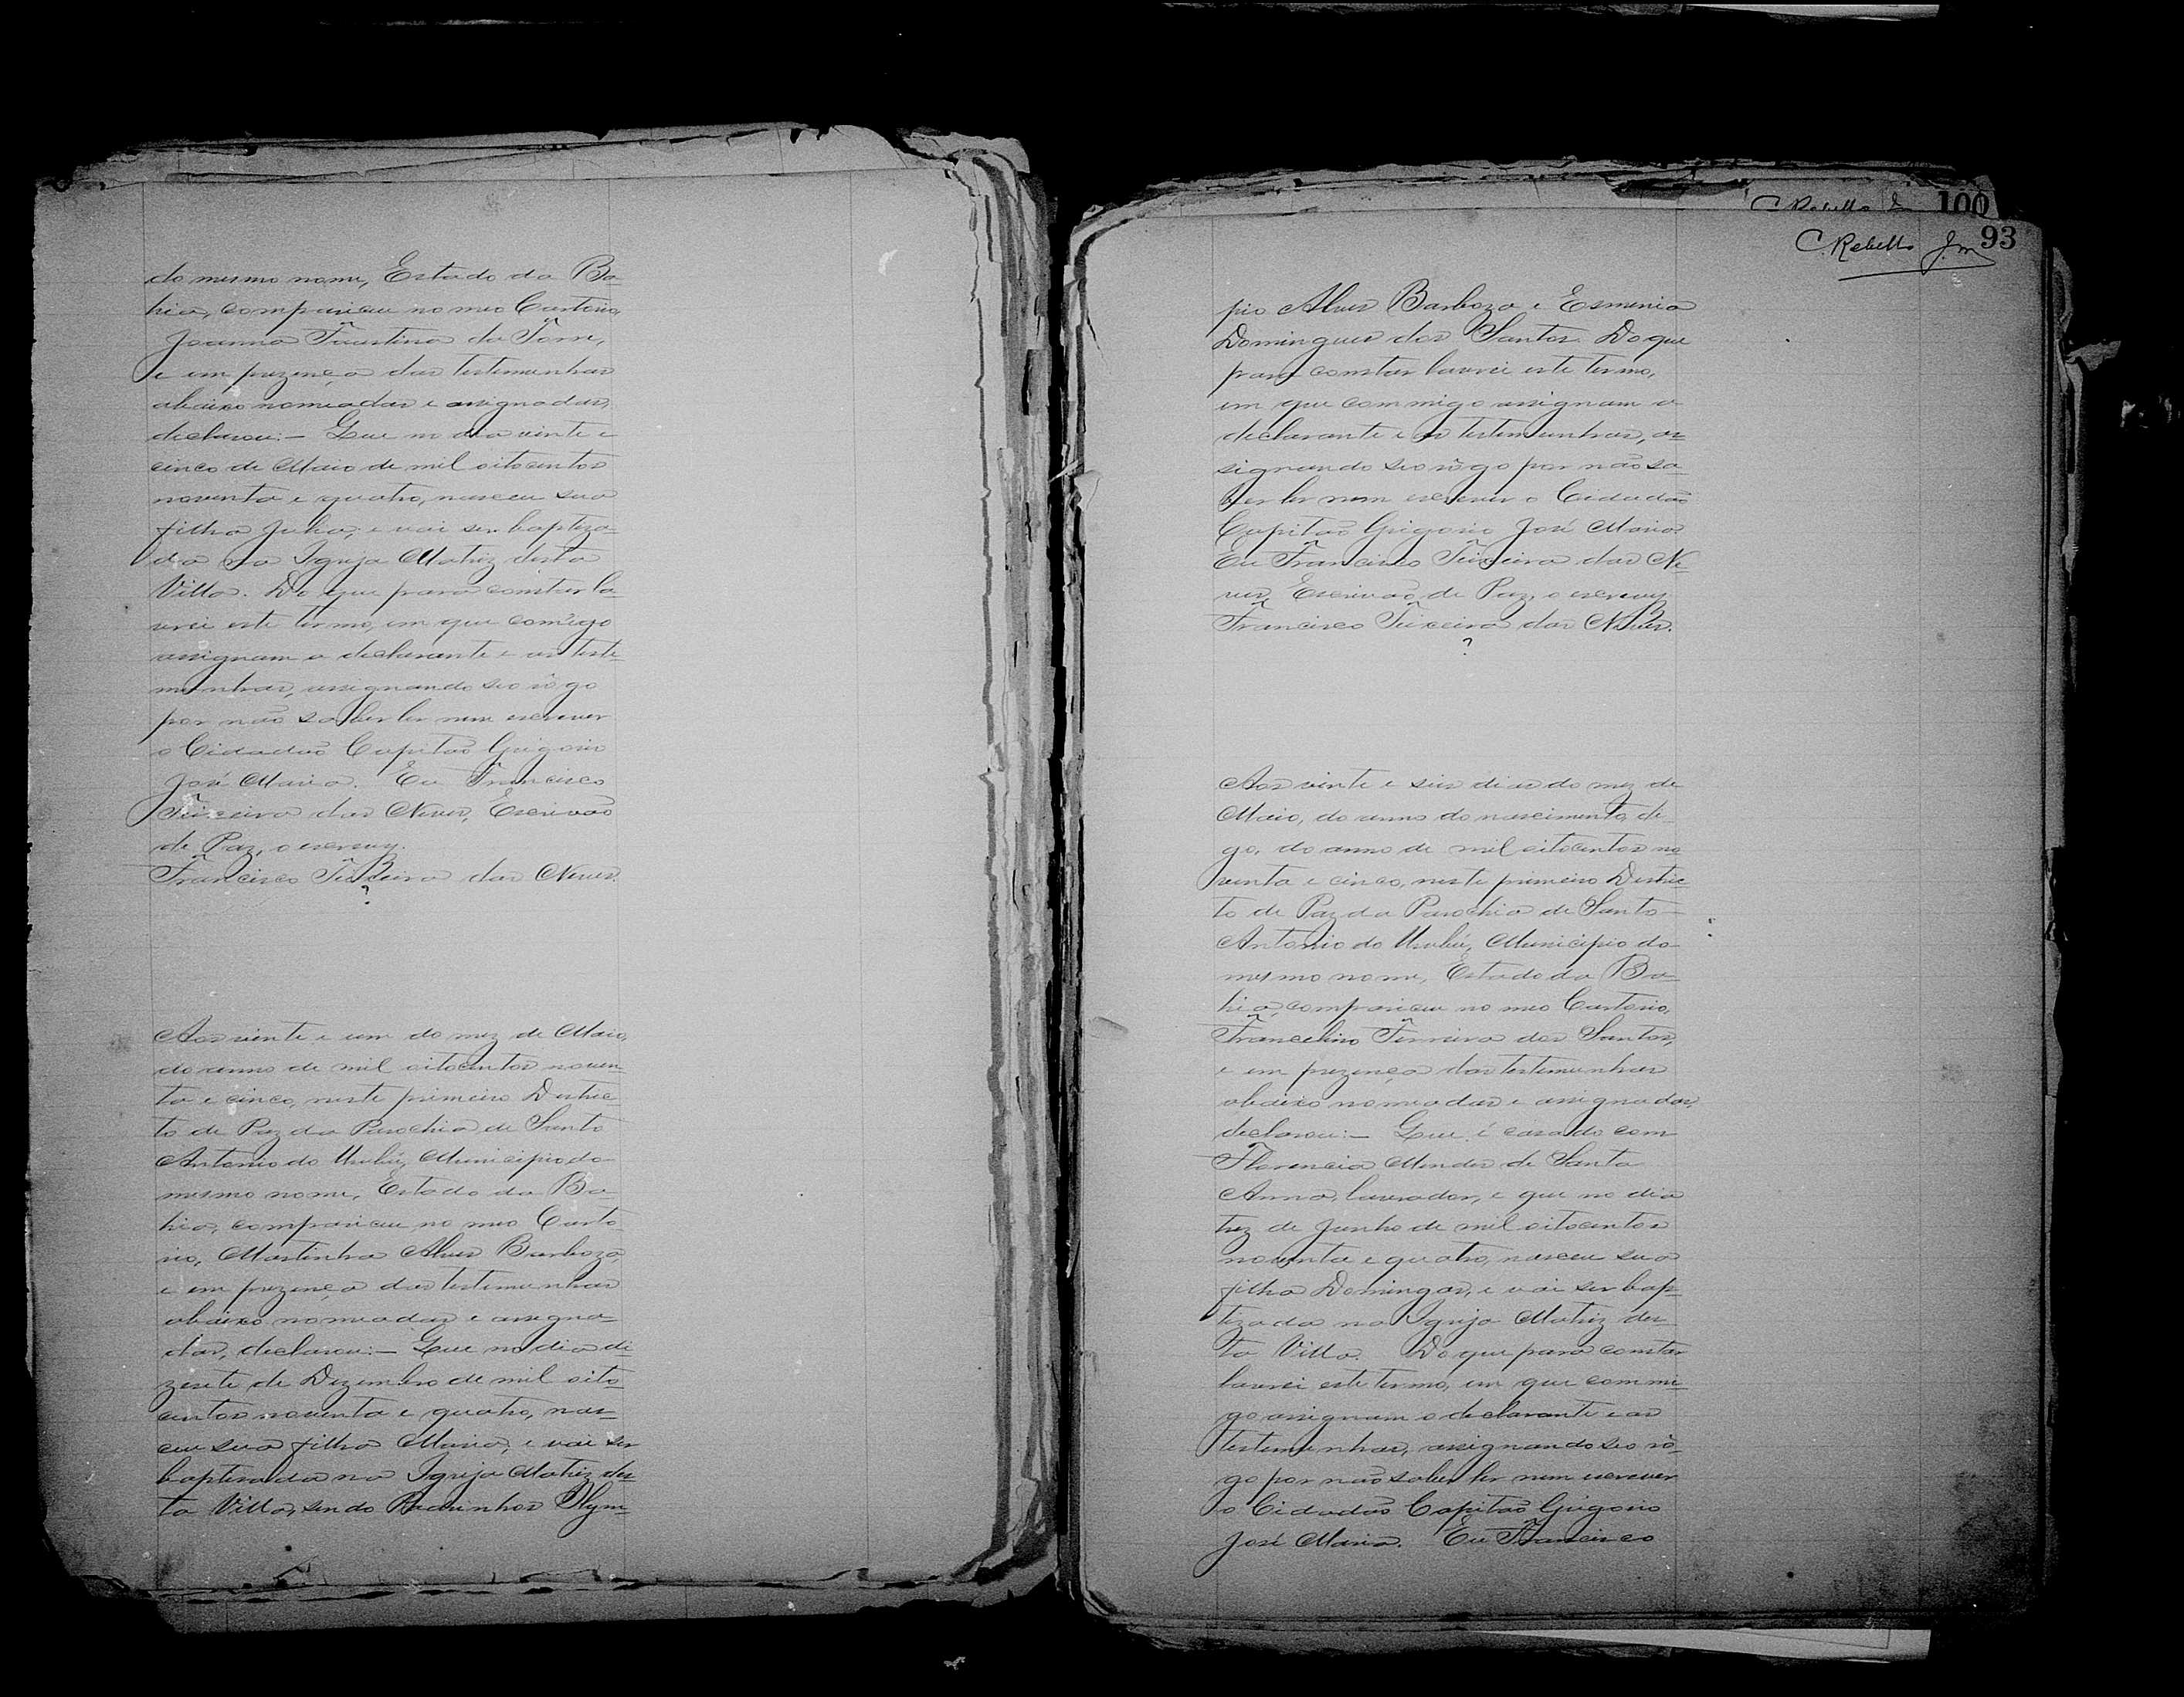 do mesmo nome, Estado da Ba-
hia, compareceu no meo Cartorio,
Joanna Faustina da Torre,
e em prezença das testemunhas
abaixo nomeadas e assignadas,
declarou:- Que no dia vinte e
cinco de Maio de mil oitocentos
noventa e quatro, nasceu sua
filha Julia; e vai ser baptiza-
da na Igreja Matriz desta
Villa. Do que para constar la-
vrei este termo, em que comigo
assignam a declarante e as teste-
munhas, assignando seo rôgo
por não saber ler nem escrever
o Cidadão Capitão Grigorio
José Maria. Eu Francisco
Teixeira das Neves, Escrivão
de Paz, o escrevy.
Francisco Teixeira das Neves.
Aos vinte e um do mez de Maio,
do anno de mil oitocentos noven-
ta e cinco, neste primeiro Destric-
to de Paz da Parochia de Santo
Antonio do Urubú, Municipio do
mesmo nome, Estado da Ba-
hia, compareceu no meo Carto-
rio, Martinha Alves Barboza,
e em prezença das testemunhas
abaixo nomeadas e assigna-
das, declarou:- Que no dia di
zesete de Dezembro de mil oito-
centos noventa e quatro, nas-
ceu sua filha Maria, e vai ser
baptizada na Igreja Matriz des-
ta Villa, sendo Padrinhos Olym-
C. Rebello Jm 100
C. Rebello Jm 93
pio Alves Barboza e Esmenia
Domingues dos Santos. Do que
para constar lavrei este termo,
em que commigo assignam a
declarante e as testemunhas, as-
signando seo rôgo por não sa-
ber ler nem escrever o Cidadão
Capitão Grigorio José Maria.
Eu Francisco Teixeira das Ne-
ves, Escrivão de Paz, o escrevy.
Francisco Teixeira das Neves.
Aos vinte e seis dias do mez de
Maio, do anno do nascimento, di-
go, do anno de mil oitocentos no-
venta e cinco, neste primeiro Destric-
to de Paz da Parochia de Santo
Antonio do Urubú, Municipio do
mesmo nome, Estado da Ba-
hia, compareceu no meo Cartorio,
Francelino Ferreira dos Santos,
e em prezença das testemunhas
abaixo nomeadas e assignadas,
declarou:- Que é casado com
Florencia Mendes de Santa
Anna, lavrador, e que no dia
trez de Junho de mil oitocentos
noventa e quatro, nasceu sua
filha Domingas, e vai ser bap-
tizada na Igreja Matriz des-
ta Villa. Do que para constar
lavrei este termo, em que commi-
go assignam o declarante e as
testemunhas, assignando seo rô-
go por não saber ler nem escrever
o Cidadão Capitão Grigorio
José Maria. Eu Francisco